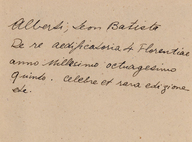 Alberti, Leon Batista
De re aedificatoria 4 Florentiae
anno Millesimo octuagesimo
quinto. celebre et rara edizione
etc.